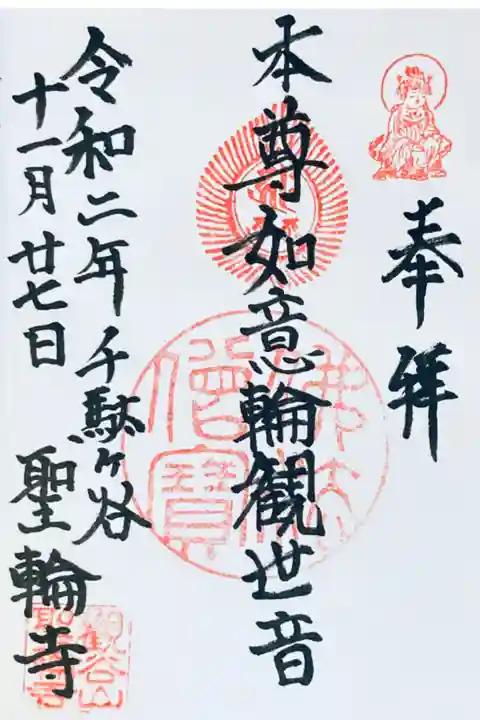 奉拝
本尊如意輪観世音
令和二年
十一月廿七日
千駄ヶ谷
聖輪寺